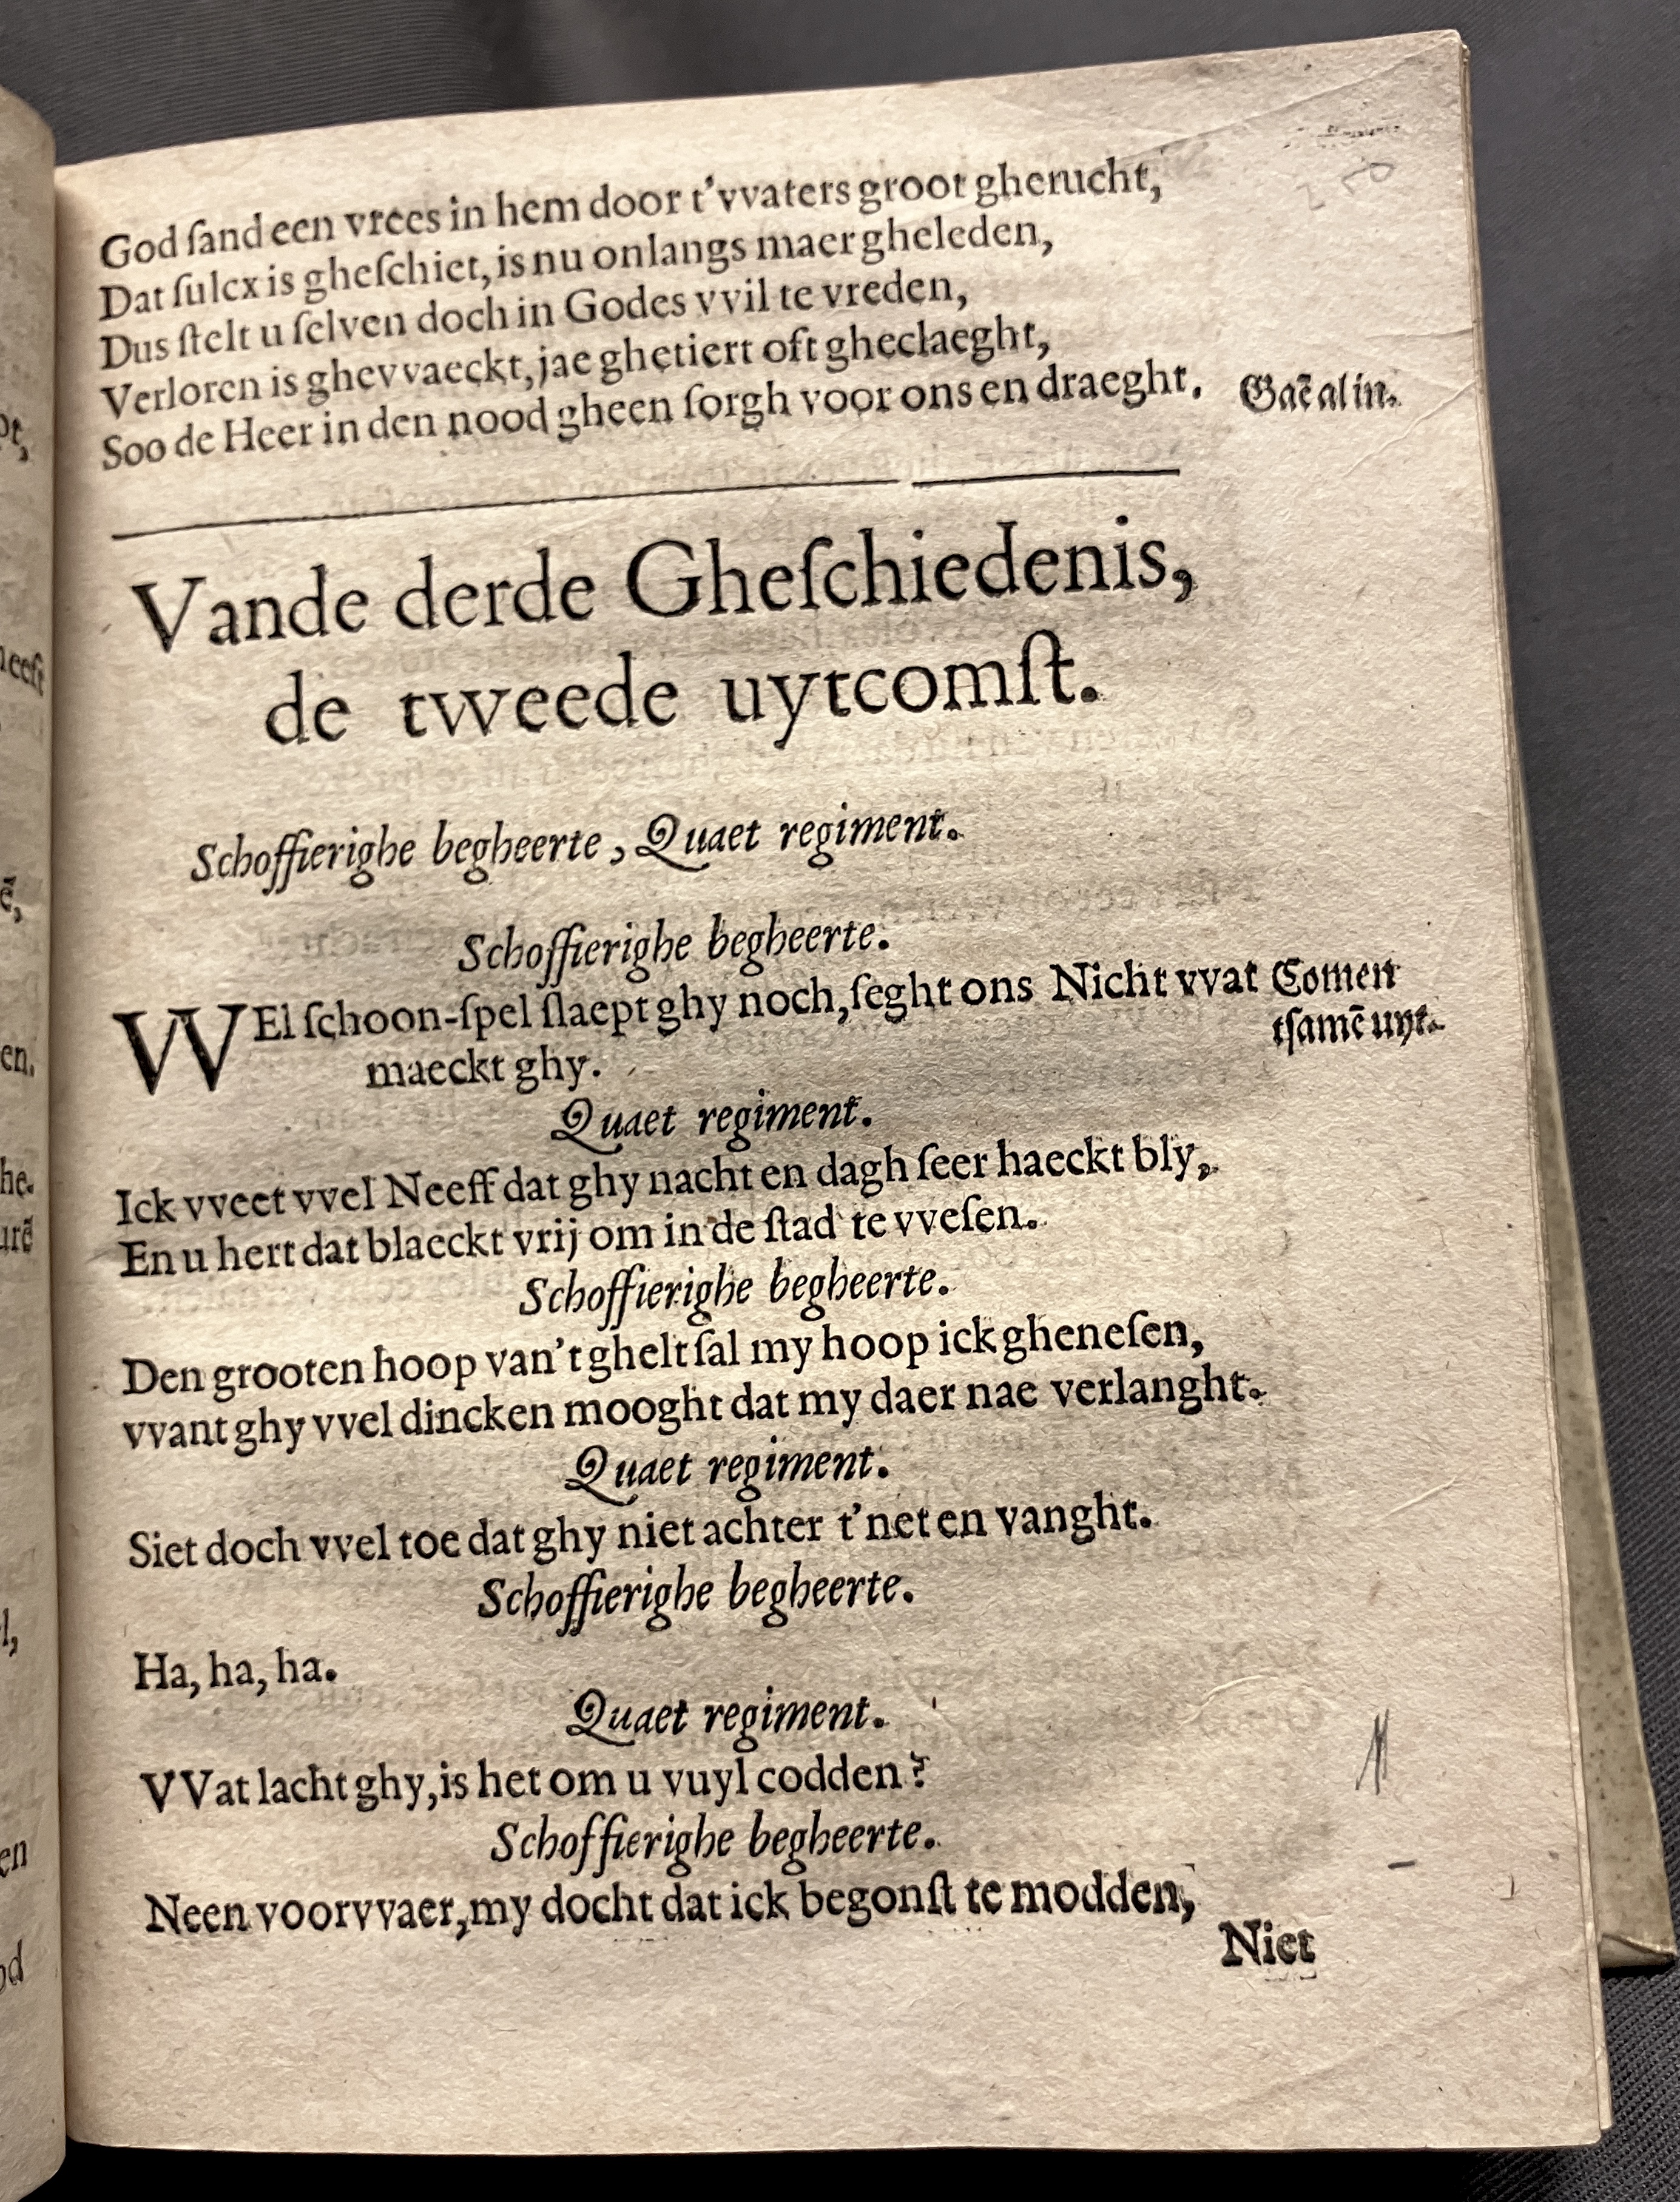 God ſand een vrees in hem door t'vvaters groot gherucht,
Dat ſulcx is gheſchiet, is nu onlangs maer gheleden,
Dus ſtelt u ſelven doch in Godes vvil te vreden,
Verloren is ghevvaeckt, jae ghetiert oft gheclaeght,
Soo de Heer in den nood gheen ſorgh voor ons en draeght. Gaẽ al in.
Vande derde Gheſchiedenis,
de tweede uytcomſt.
Schoffierighe begheerte, Quaet regiment.
Schoffierighe begheerte.
WEl ſchoon-ſpel ſlaept ghy noch, ſeght ons Nicht vvat Comen
maeckt ghy. tſamẽ uyt.
Quaet regiment.
Ick vveet vvel Neeff dat ghy nacht en dagh ſeer haeckt bly,
En u hert dat blaeckt vrij om in de ſtad te vveſen.
Schoffierighe begheerte.
Den grooten hoop van't ghelt ſal my hoop ick gheneſen,
vvant ghy vvel dincken mooght dat my daer nae verlanght.
Quaet regiment.
Siet doch vvel toe dat ghy niet achter t'net en vanght.
Schoffierighe begheerte.
Ha, ha, ha.
Quaet regiment.
VVat lacht ghy, is het om u vuyl codden?
Schoffierighe begheerte.
Neen voorvvaer, my docht dat ick begonſt te modden,
Niet